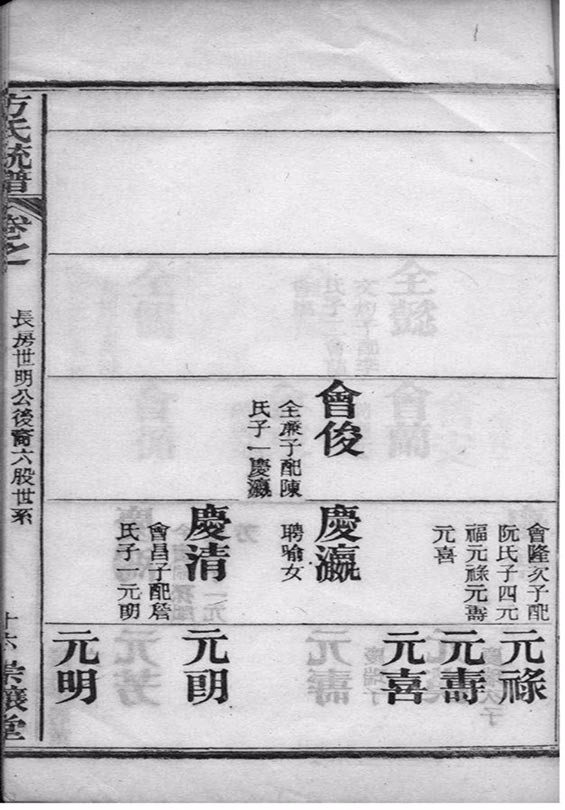 會俊
全廉子配陳
氏子一慶瀛
會隆次子配
阮氏子四元
福元祿元壽
元喜
慶瀛
聘喻女
慶清
會昌子配詹
氏子一元明
元祿
元壽
元喜
元
元明
方氏統譜
卷之一
長房世明公後裔六股世系
十六
崇讓堂